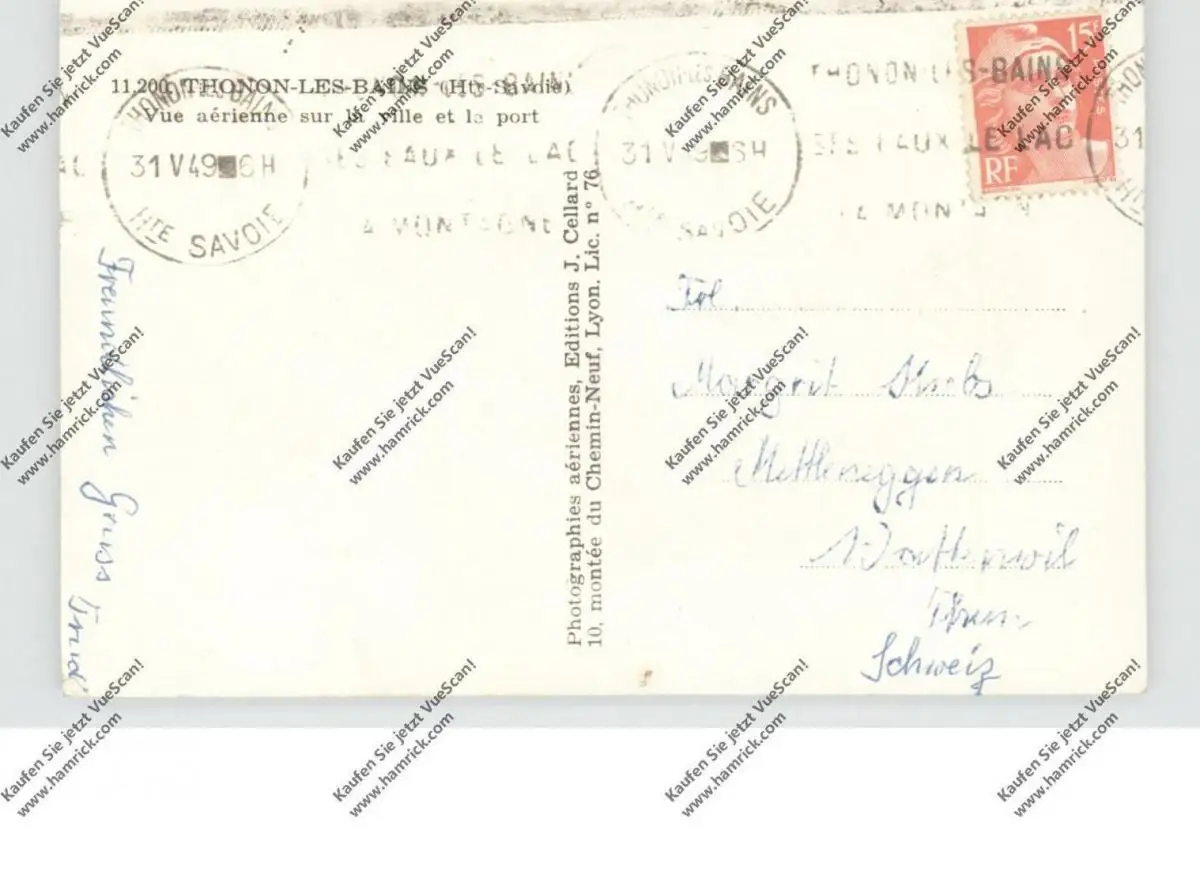 11.200 THONON-LES-BAINS (Hte-Savoie)
Vue aérienne sur la ville et le port
THONON-LES-BAINS
31 V 49 6H
HTE SAVOIE
THONON-LES-BAINS
SES EAUX LE LAC
LA MONTAGNE
THONON-LES-BAINS
31 V 49 6H
HTE SAVOIE
THONON-LES-BAINS
SES EAUX LE LAC
LA MONTAGN
15F
RF
31
Freundlichen Gruss Trudi
Photographies aériennes, Editions J. Cellard
10, montée du Chemin-Neuf, Lyon. Lic. n° 76
Frl
Margrit
Mettleneggen
Wattenwil
Thun
Schweiz
Kaufen Sie jetzt VueScan!
www.hamrick.com